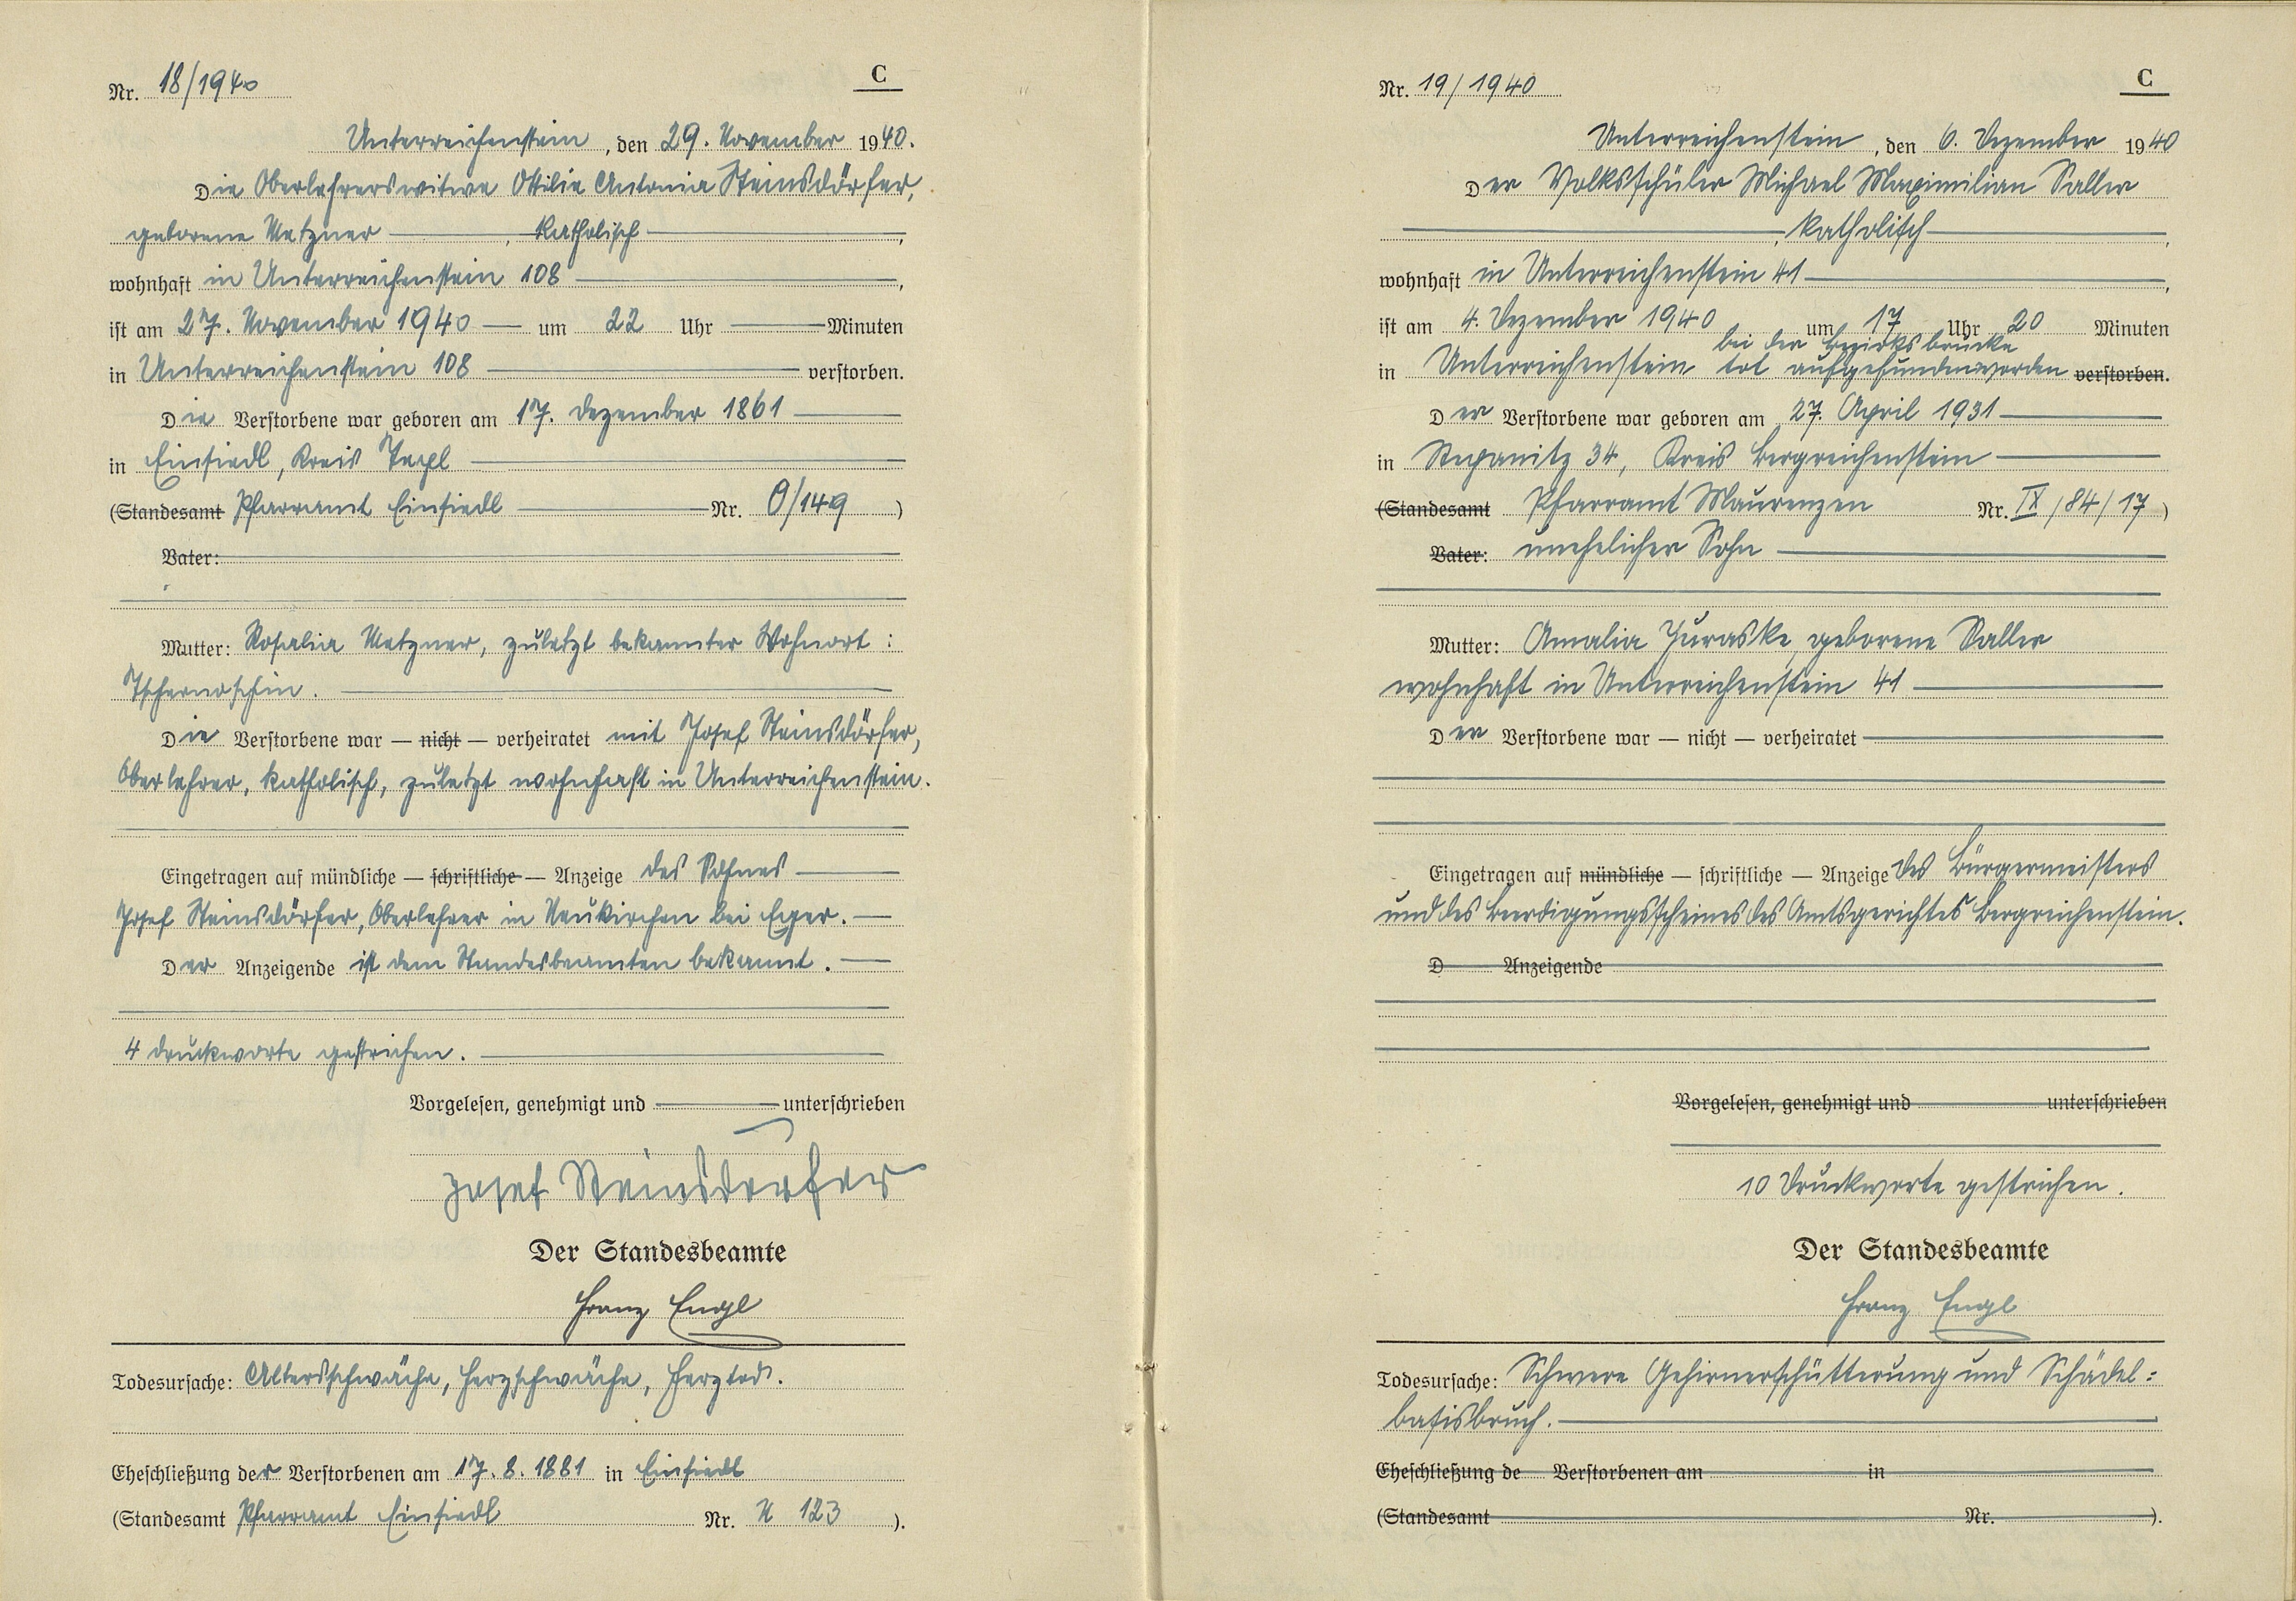 Nr. 18/1940
C
Unterreichenstein, den 29. November 1940.
Die Oberlehrerswitwe Ottilie Antonia Steinsdörfer,
geborene Metzner, katholisch,
wohnhaft in Unterreichenstein 108,
ist am 27. November 1940 um 22 Uhr Minuten
in Unterreichenstein 108 verstorben.
Die Verstorbene war geboren am 17. Dezember 1861
in Einsiedl, Kreis Tepl
(Standesamt Pfarramt Einsiedl Nr. O/149)
Vater:
Mutter: Rosalia Metzner, zuletzt bekannter Wohnort:
Tschernoschin.
Die Verstorbene war — nicht — verheiratet mit Josef Steinsdörfer,
Oberlehrer, katholisch, zuletzt wohnhaft in Unterreichenstein.
Eingetragen auf mündliche — schriftliche — Anzeige des Sohnes
Josef Steinsdörfer, Oberlehrer in Neukirchen bei Eger.
Der Anzeigende ist dem Standesbeamten bekannt.
4 Druckworte gestrichen.
Vorgelesen, genehmigt und unterschrieben
Josef Steinsdörfer
Der Standesbeamte
Franz Engl
Todesursache: Altersschwäche, Herzschwäche, Herztod.
Eheschließung der Verstorbenen am 17.8.1881 in Einsiedl
(Standesamt Pfarramt Einsiedl Nr. 123).
Nr. 19/1940
C
Unterreichenstein, den 6. Dezember 1940
Der Volksschüler Michael Maximilian Saller
, katholisch,
wohnhaft in Unterreichenstein 41,
ist am 4. Dezember 1940 um 17 Uhr 20 Minuten
bei der Bezirksbrücke
in Unterreichenstein tot aufgefunden worden verstorben.
Der Verstorbene war geboren am 27. April 1931
in Stepanitz 34, Kreis Bergreichenstein
(Standesamt Pfarramt Maurenzen Nr. IX/84/17)
Vater: unehelicher Sohn
Mutter: Amalia Juraske, geborene Saller
wohnhaft in Unterreichenstein 41
Der Verstorbene war — nicht — verheiratet
Eingetragen auf mündliche — schriftliche — Anzeige des Bürgermeisters
und des Beerdigungsscheines des Amtsgerichtes Bergreichenstein.
D Anzeigende
Vorgelesen, genehmigt und unterschrieben
10 Druckworte gestrichen.
Der Standesbeamte
Franz Engl
Todesursache: Schwere Gehirnerschütterung und Schädel=
basisbruch.
Eheschließung de Verstorbenen am in
(Standesamt Nr. ).